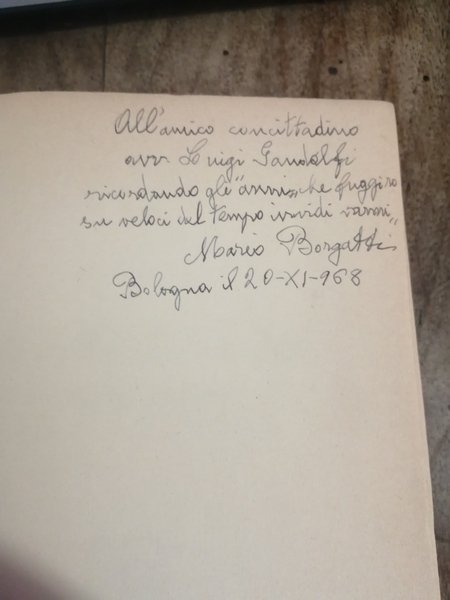 All'amico concittadino
avv Luigi Gandolfi
ricordando gli "anni„ che fuggiro
su veloci del tempo invidi vanni„
Mario Borgatti
Bologna il 20-XI-968